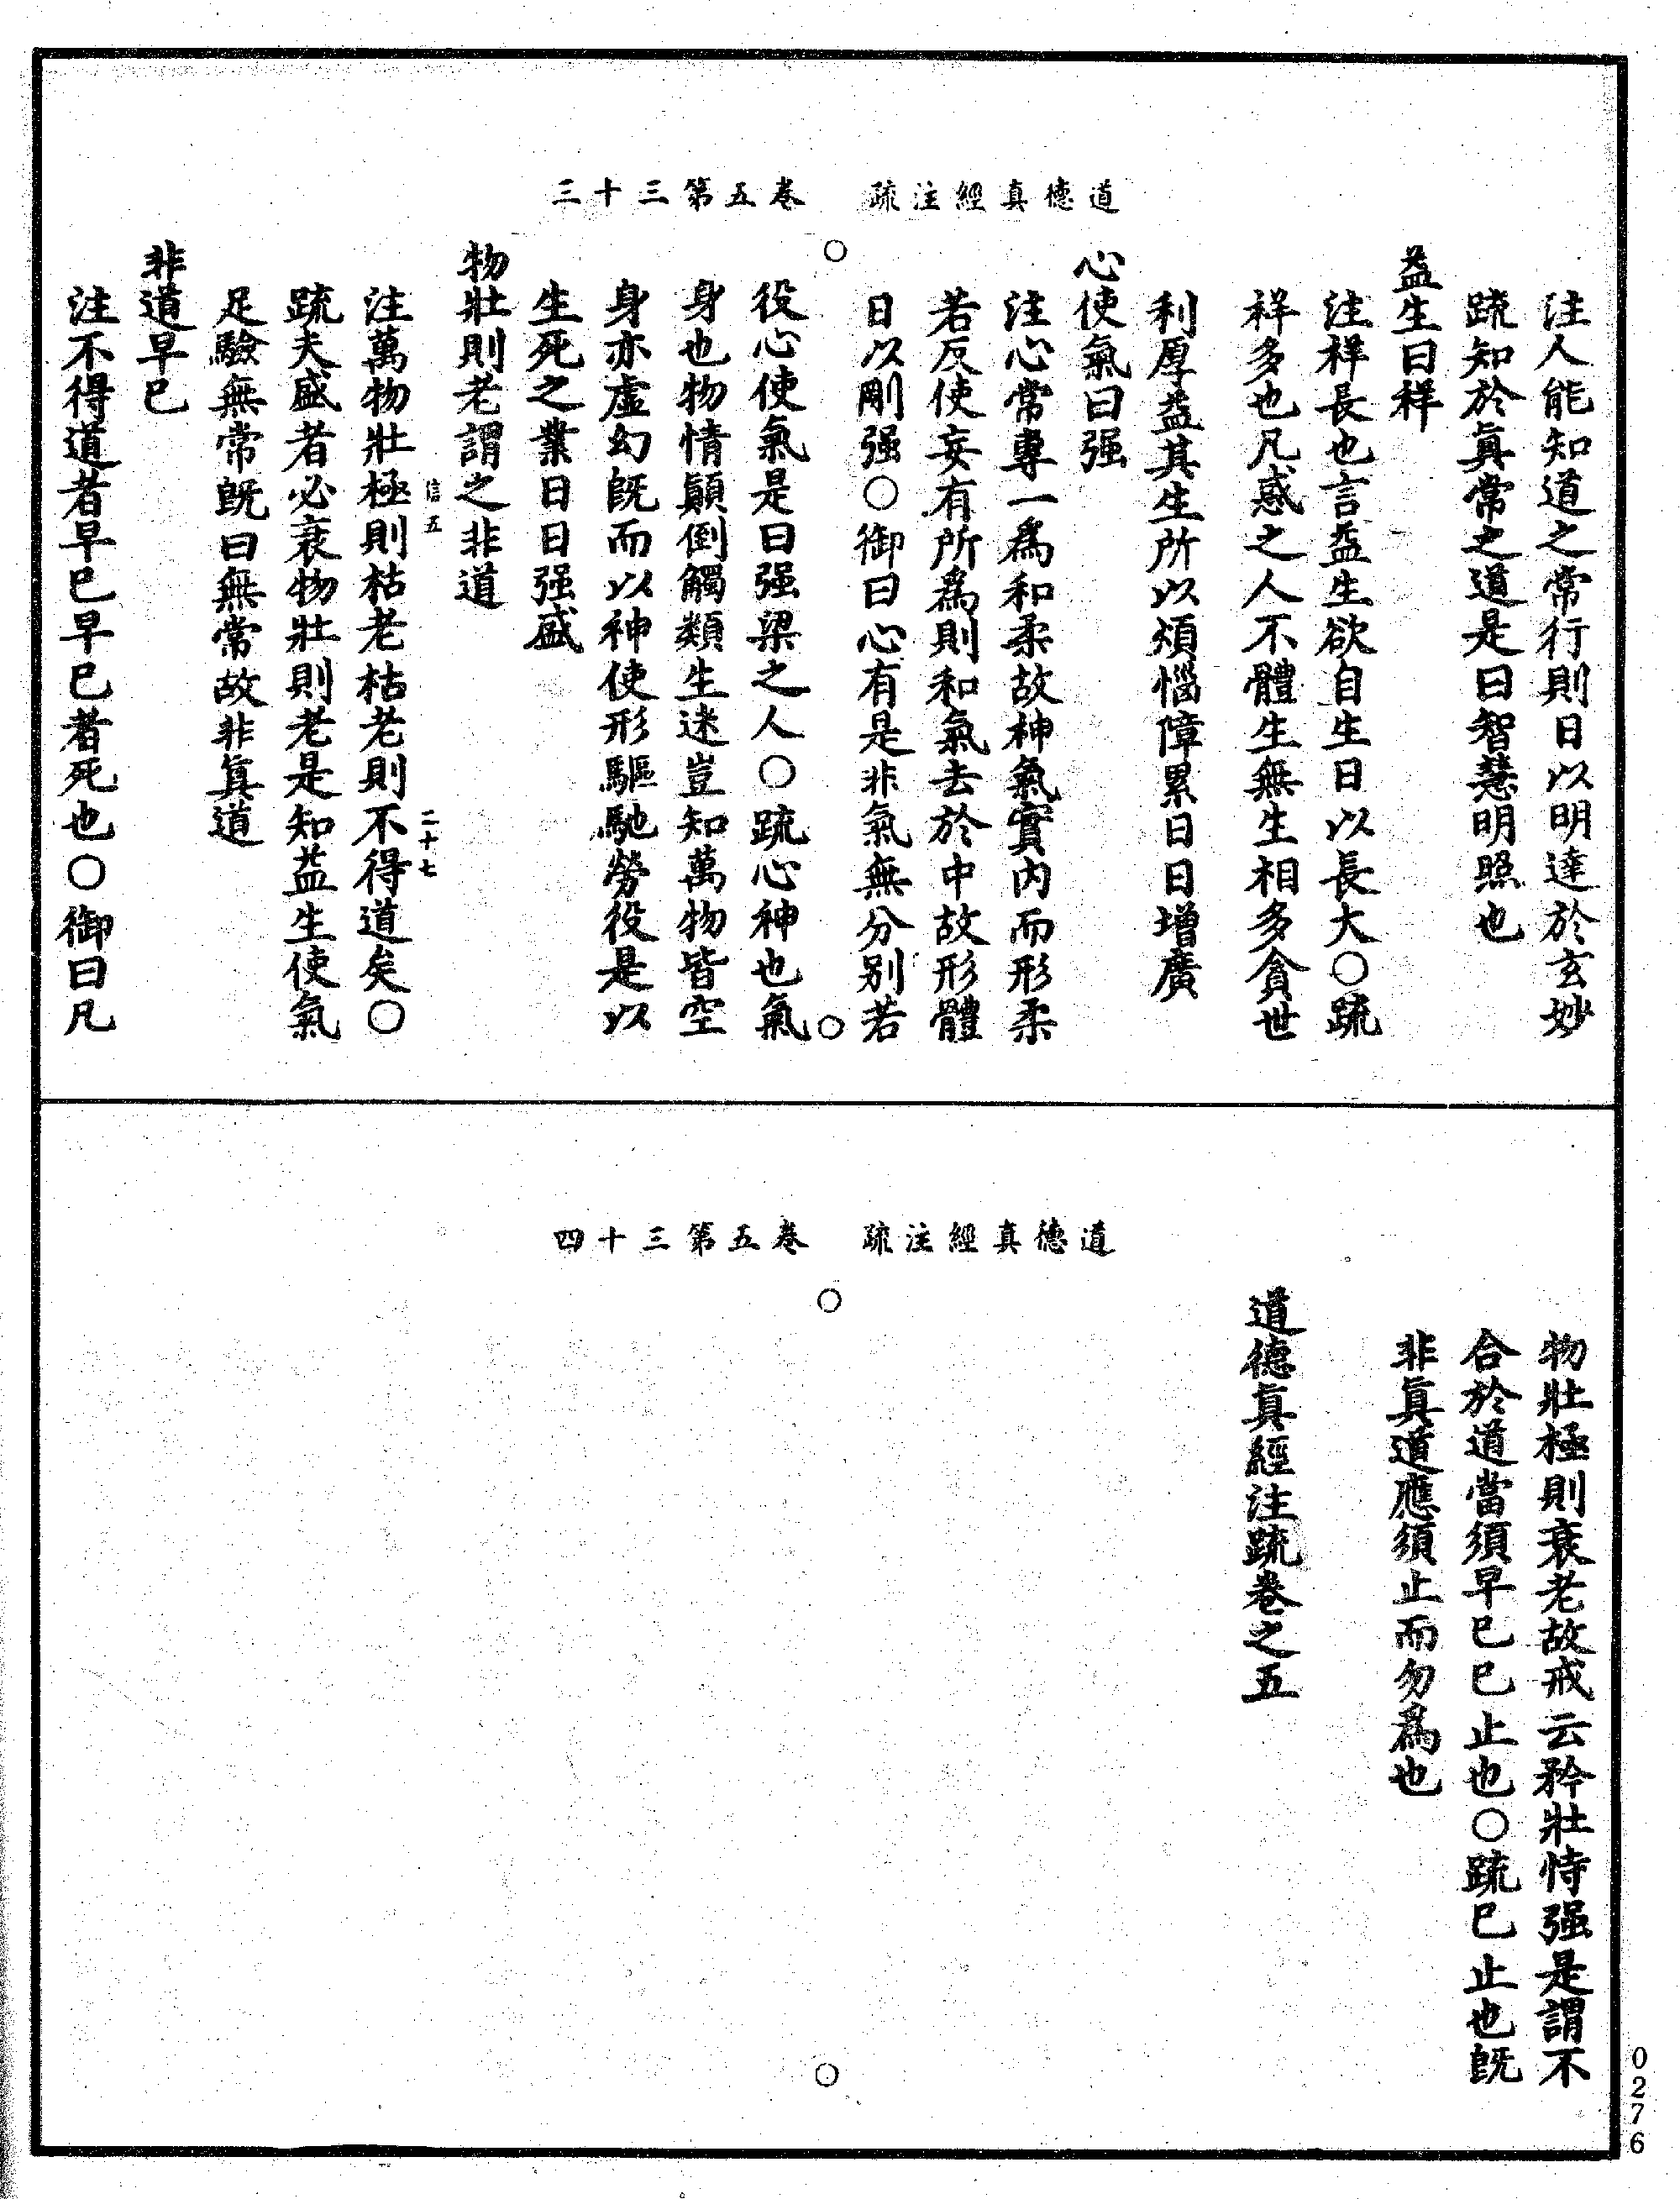 道德真經注疏　卷五第三十三
注人能知道之常行則日以明達於玄妙
疏知於真常之道是曰智慧明照也
益生日祥
注祥長也言益生欲自生日以長大○疏
祥多也凡惑之人不體生無生相多貪世
利厚益其生所以煩惱障累日日增廣
心使氣曰强
注心常專一為和柔故神氣實内而形柔
若反使妄有所為則和氣去於中故形體
日以剛强○御曰心有是非氣無分別若
役心使氣是曰强梁之人○疏心神也氣
身也物情顛倒觸類生迷豈知萬物皆空
身亦虛幻旣而以神使形驅馳勞役是以
生死之業日日强盛
物壯則老謂之非道
信五　二十七
注萬物壯極則枯老枯老則不得道矣○
疏夫盛者必衰物壯則老是知益生使氣
足驗無常旣曰無常故非真道
非道早巳
注不得道者早巳早巳者死也○御曰凡
道德真經注疏　卷五第三十四
物壯極則衰老故戒云矜壯恃强是謂不
合於道當須早巳巳止也○疏巳止也旣
非真道應須止而勿為也
道德真經注疏卷之五
0276